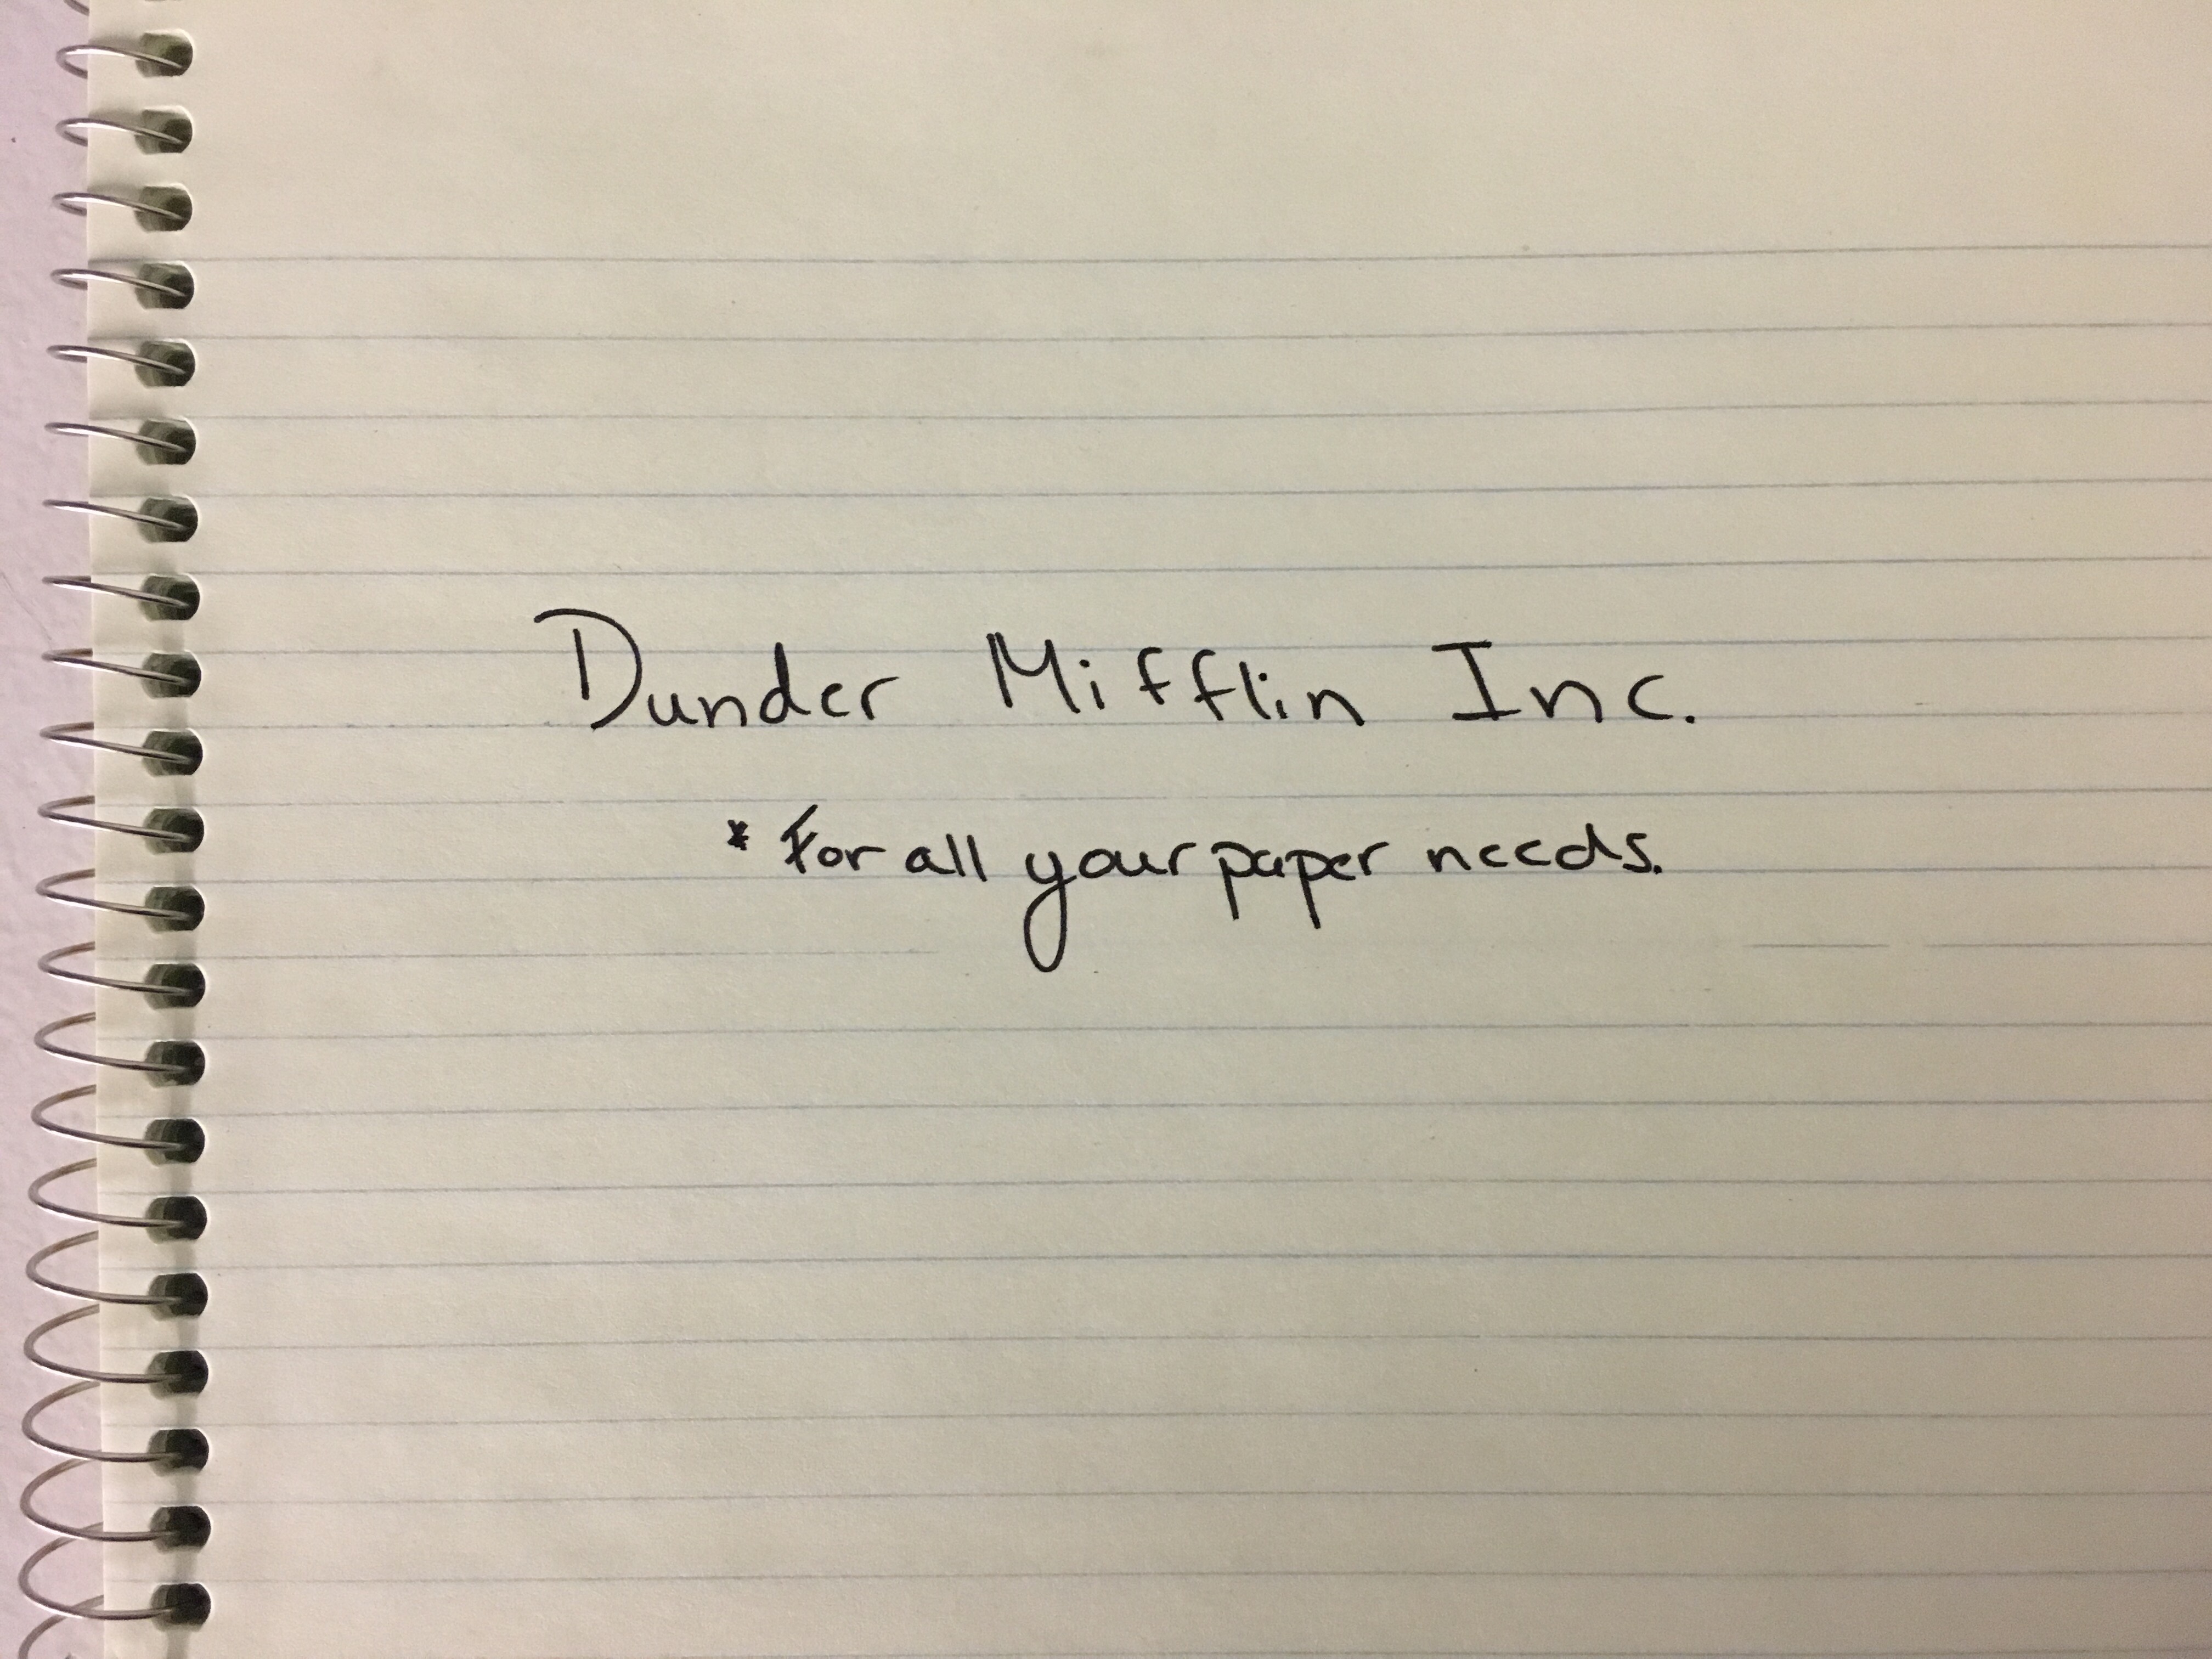 Dunder Mifflin Inc.
* For all your paper needs.